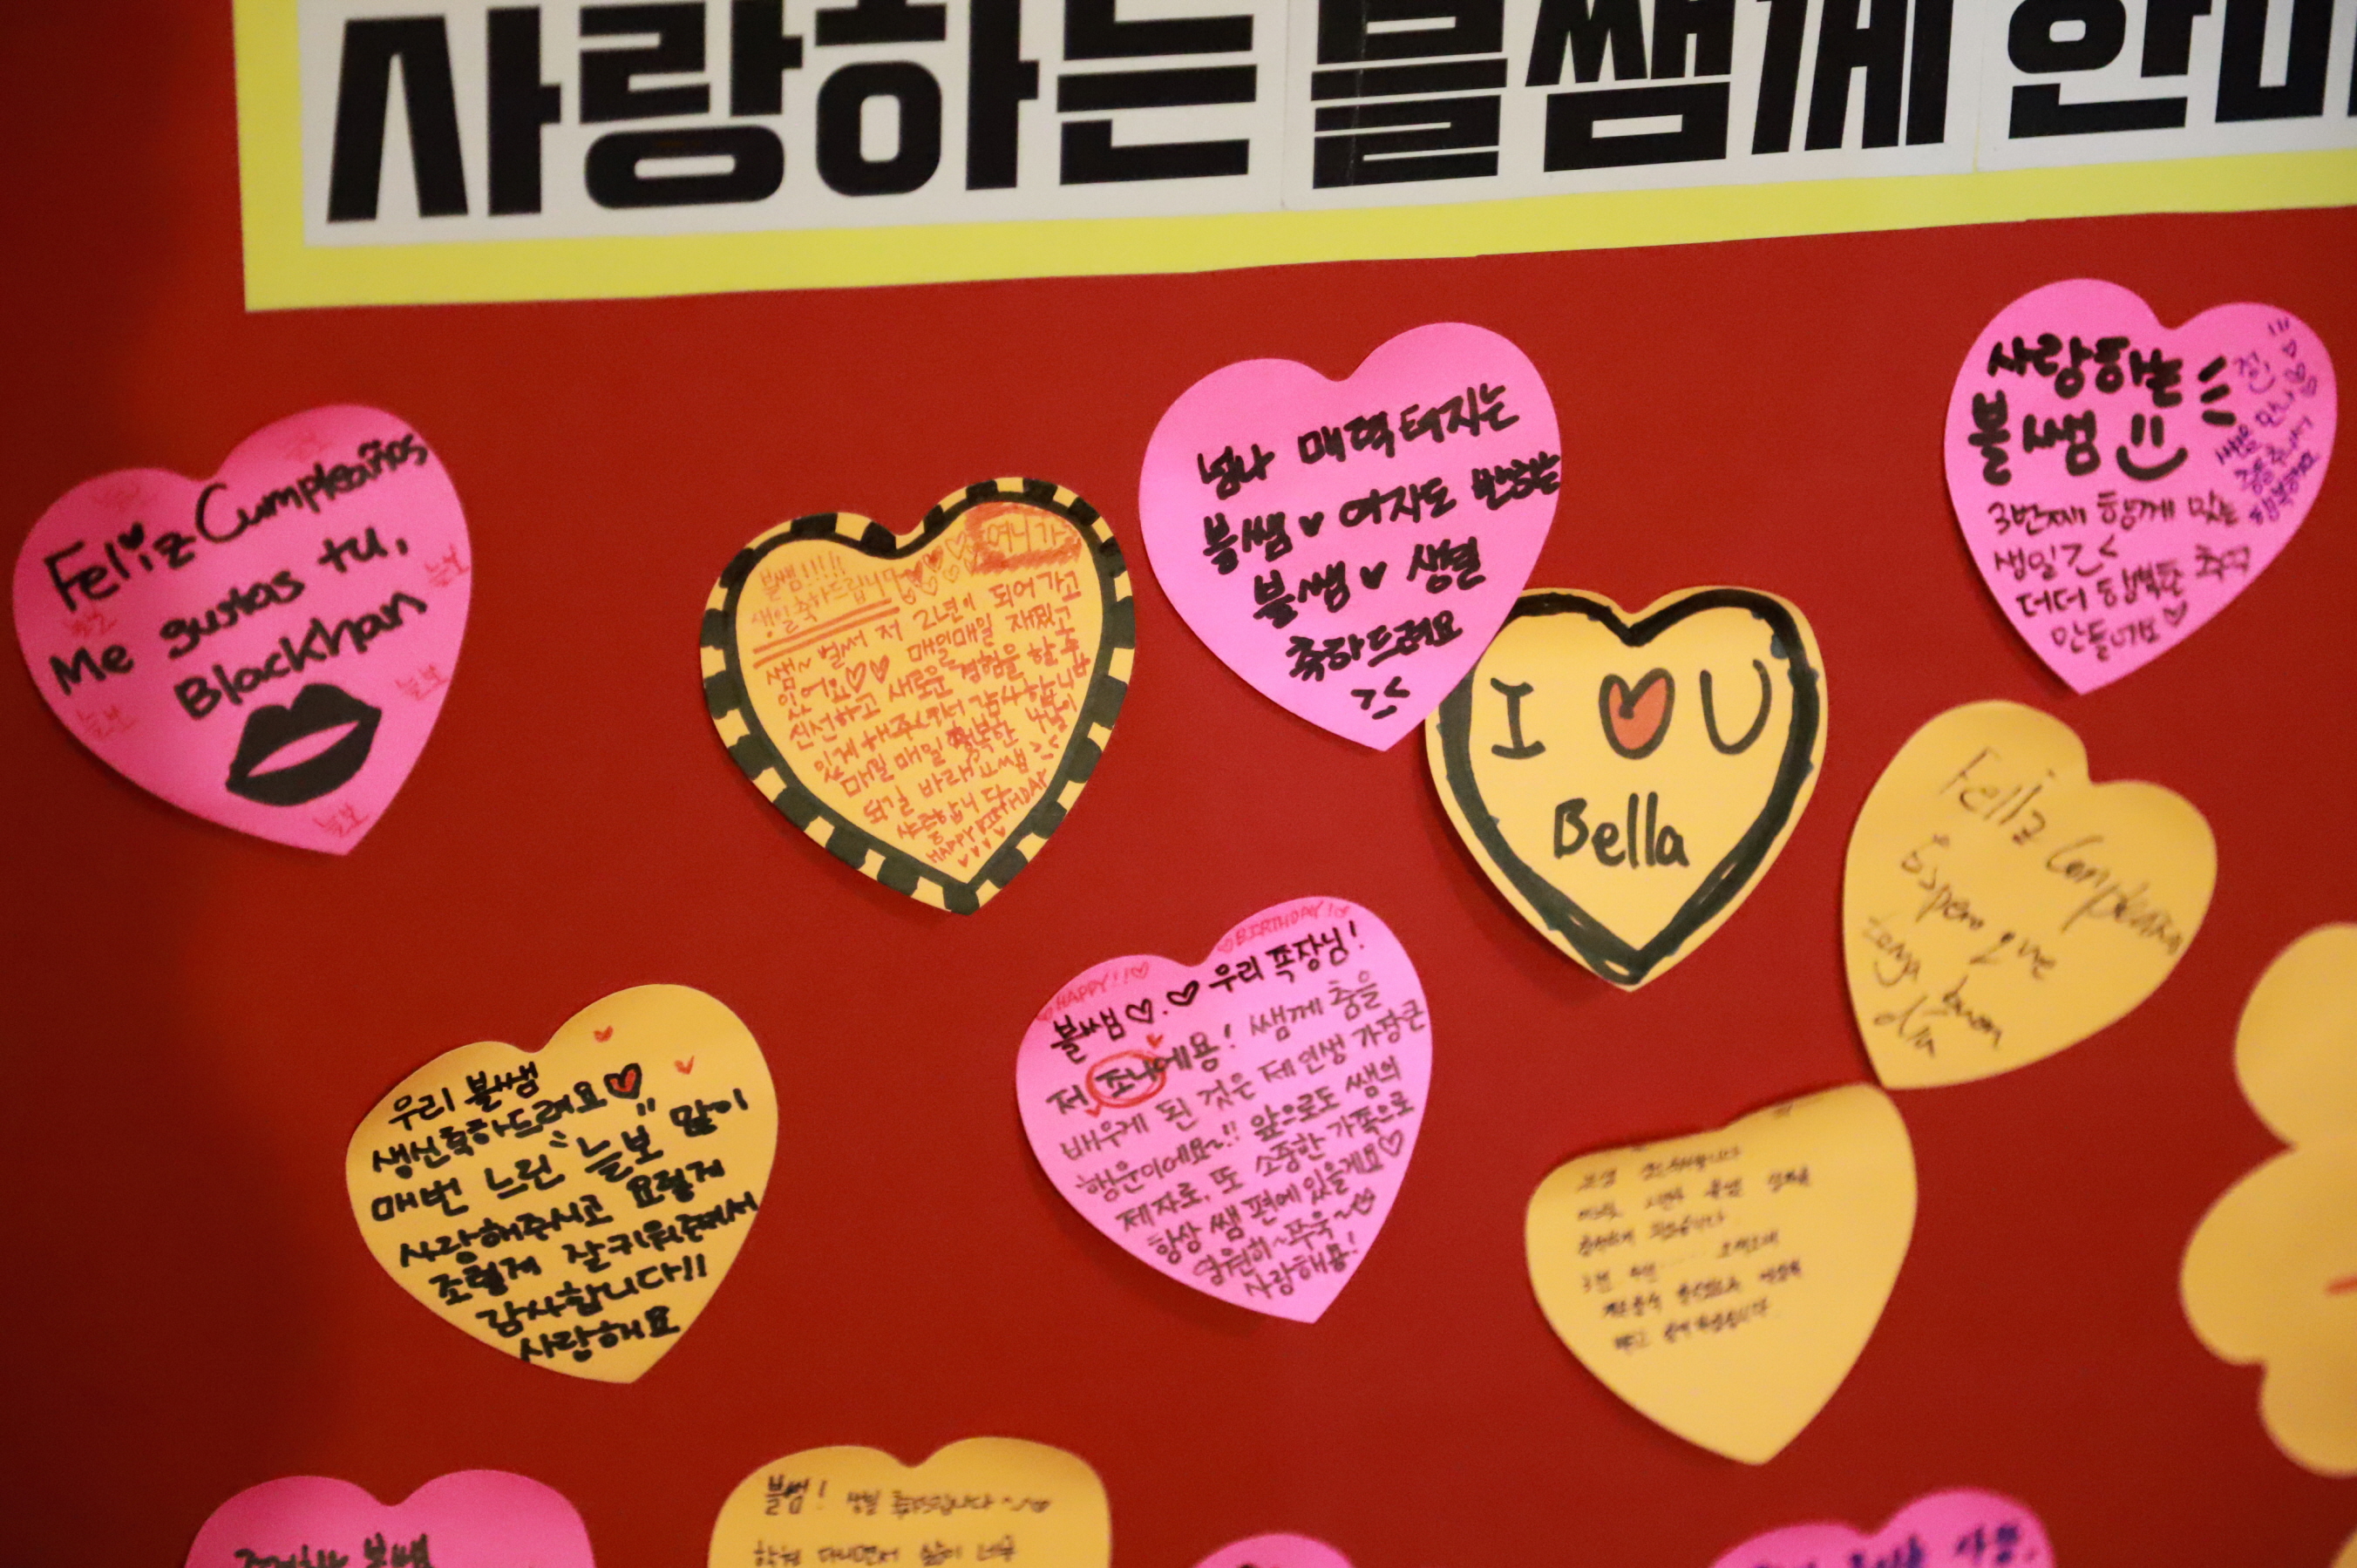 사랑하는 블쌤께 한마
Feliz Cumpleaños
Me gustas tu,
Blackhan
늘보
늘보
늘보
늘보
늘보
여니가
블쌤!!!!!
생일축하드립니다♡♡♡♡♡
쌤~ 벌써 저 2년이 되어가고
있어요♡♡ 매일매일 재밌고
신선하고 새로운 경험을 할 수
있게 해주셔서 감사합니다
매일매일 행복한 나날이
되길 바래요쌤 ㅋㅋ
사랑합니다
HAPPY BIRTHDAY
넘나 매력터지는
블쌤♥ 여자도 반하는
블쌤♥ 생일
축하드려요
ㅋㅋ
I ♥ U
Bella
사랑하는
블쌤
3번째 함께 맞는
생일ㅋㅋ
더더 행복한 추억
만들어요♡
쌤을 만나
춤춰서
행복해요
Feliz Cumpleaños
Espero que
tenga buen
día
우리 블쌤
생신축하드려요♥
매번 느린 "늘보" 많이
사랑해주시고 요렇게
조렇게 잘 키워주셔서
감사합니다!!
사랑해요
♡HAPPY!!♡ ♡BIRTHDAY!♡
블쌤♡.♡ 우리 쪽장님!
저 조나에용! 쌤께 춤을
배우게 된 것은 제 인생 가장큰
행운이에요~!! 앞으로도 쌤의
제자로, 또 소중한 가족으로
항상 쌤 편에 있을게요♡
영원히~쭈욱~♡
사랑해용!
3번
블쌤! 생일 축하드립니다~♡
학원 다니면서 삶이 너무
블쌤